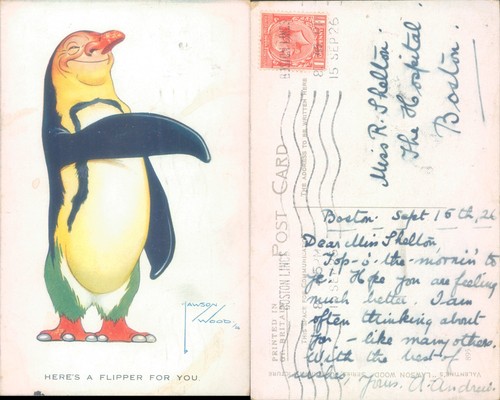 LAWSON
WOOD.
HERE'S A FLIPPER FOR YOU.
15 SEP 26
POST CARD
THE ADDRESS TO BE WRITTEN HERE
BOSTON LINCS
PRINTED IN
Miss R. Shelton.
The Hospital
Boston.
Boston. Sept 15th, 26
Dear Miss Shelton,
Top-o'-the-mornin' to
ye! Hope you are feeling
much better. I am
often thinking about
you - like many others.
With the best of
wishes, Yours. A. Andrew.
VALENTINE'S "LAWSON WOOD"